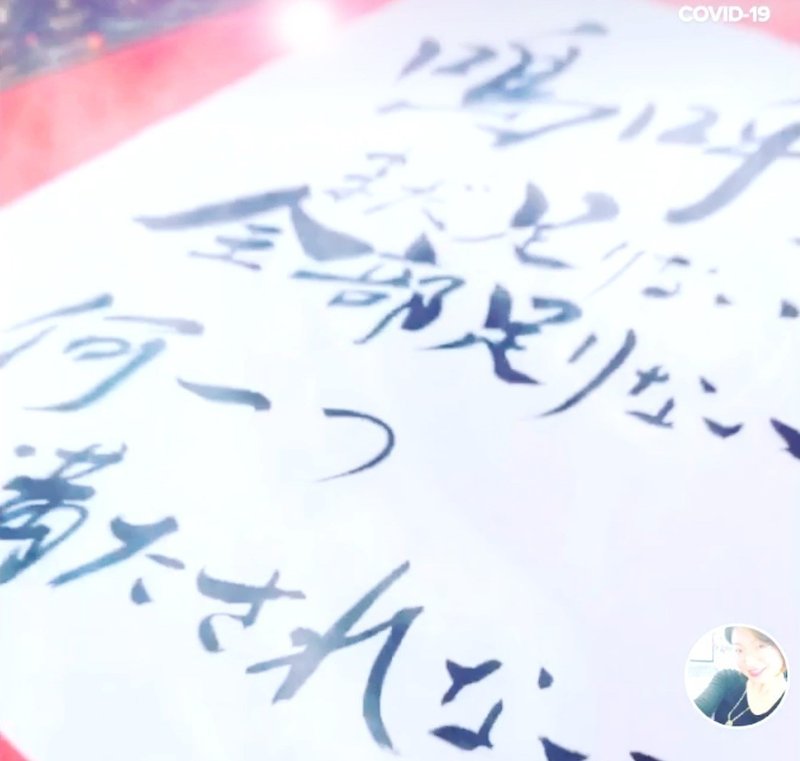 COVID-19
まだ足りない
全部足りない
何一つ
満たされない